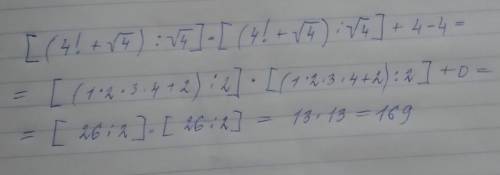 [(4! + √4) : √4] · [(4! + √4) : √4] + 4 - 4 =
= [(1·2·3·4+2) : 2] · [(1·2·3·4+2) : 2] + 0 =
= [26:2] · [26:2] = 13·13 = 169